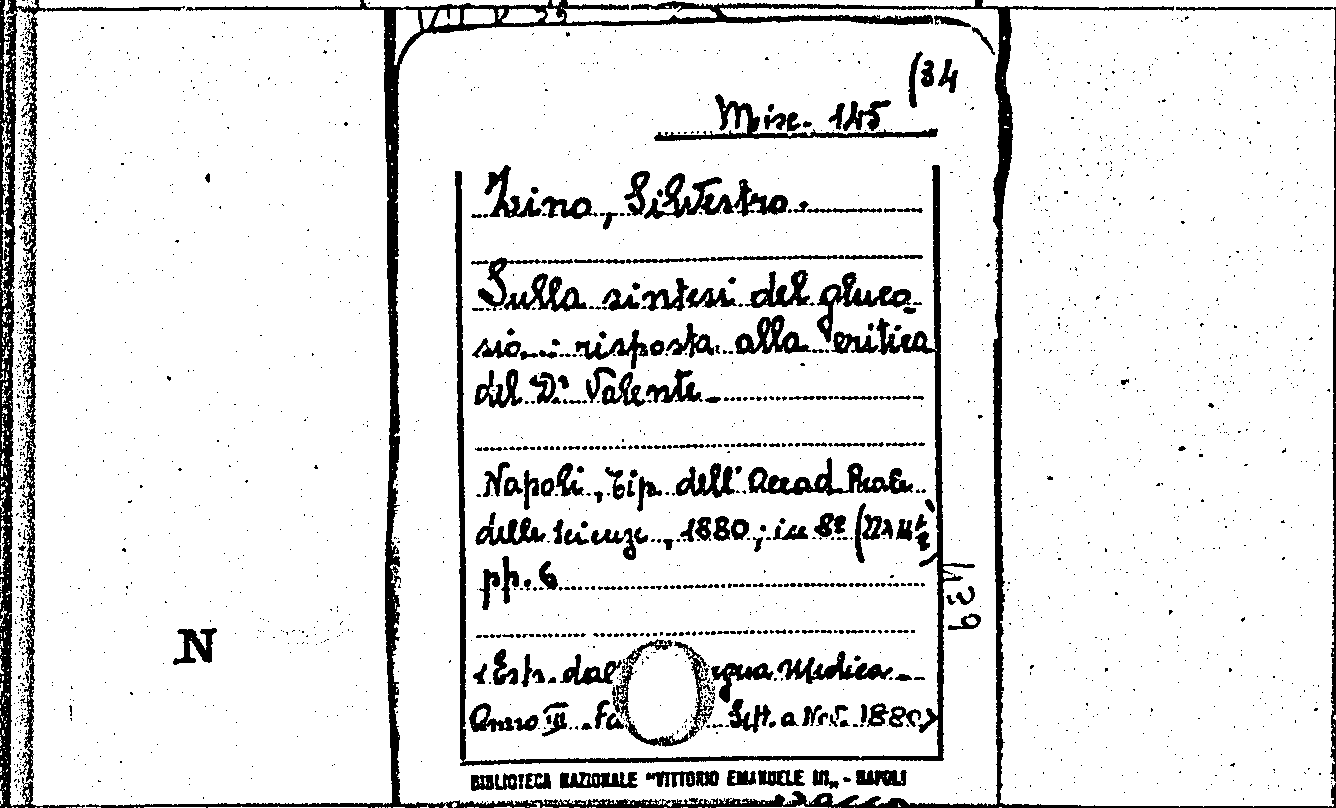 (34
Misc. 145
Zino, Silvestro.
Sulla sintesi del gluco-
sio : risposta alla critica
del Dr Valente.
Napoli, Tip. dell' Accad Reale
delle Scienze, 1880; in 8º
pp. 6
Estr. dal Medica
Anno III Sett. a Nov. 1880>
N
BIBLIOTECA NAZIONALE "VITTORIO EMANUELE III„ - NAPOLI